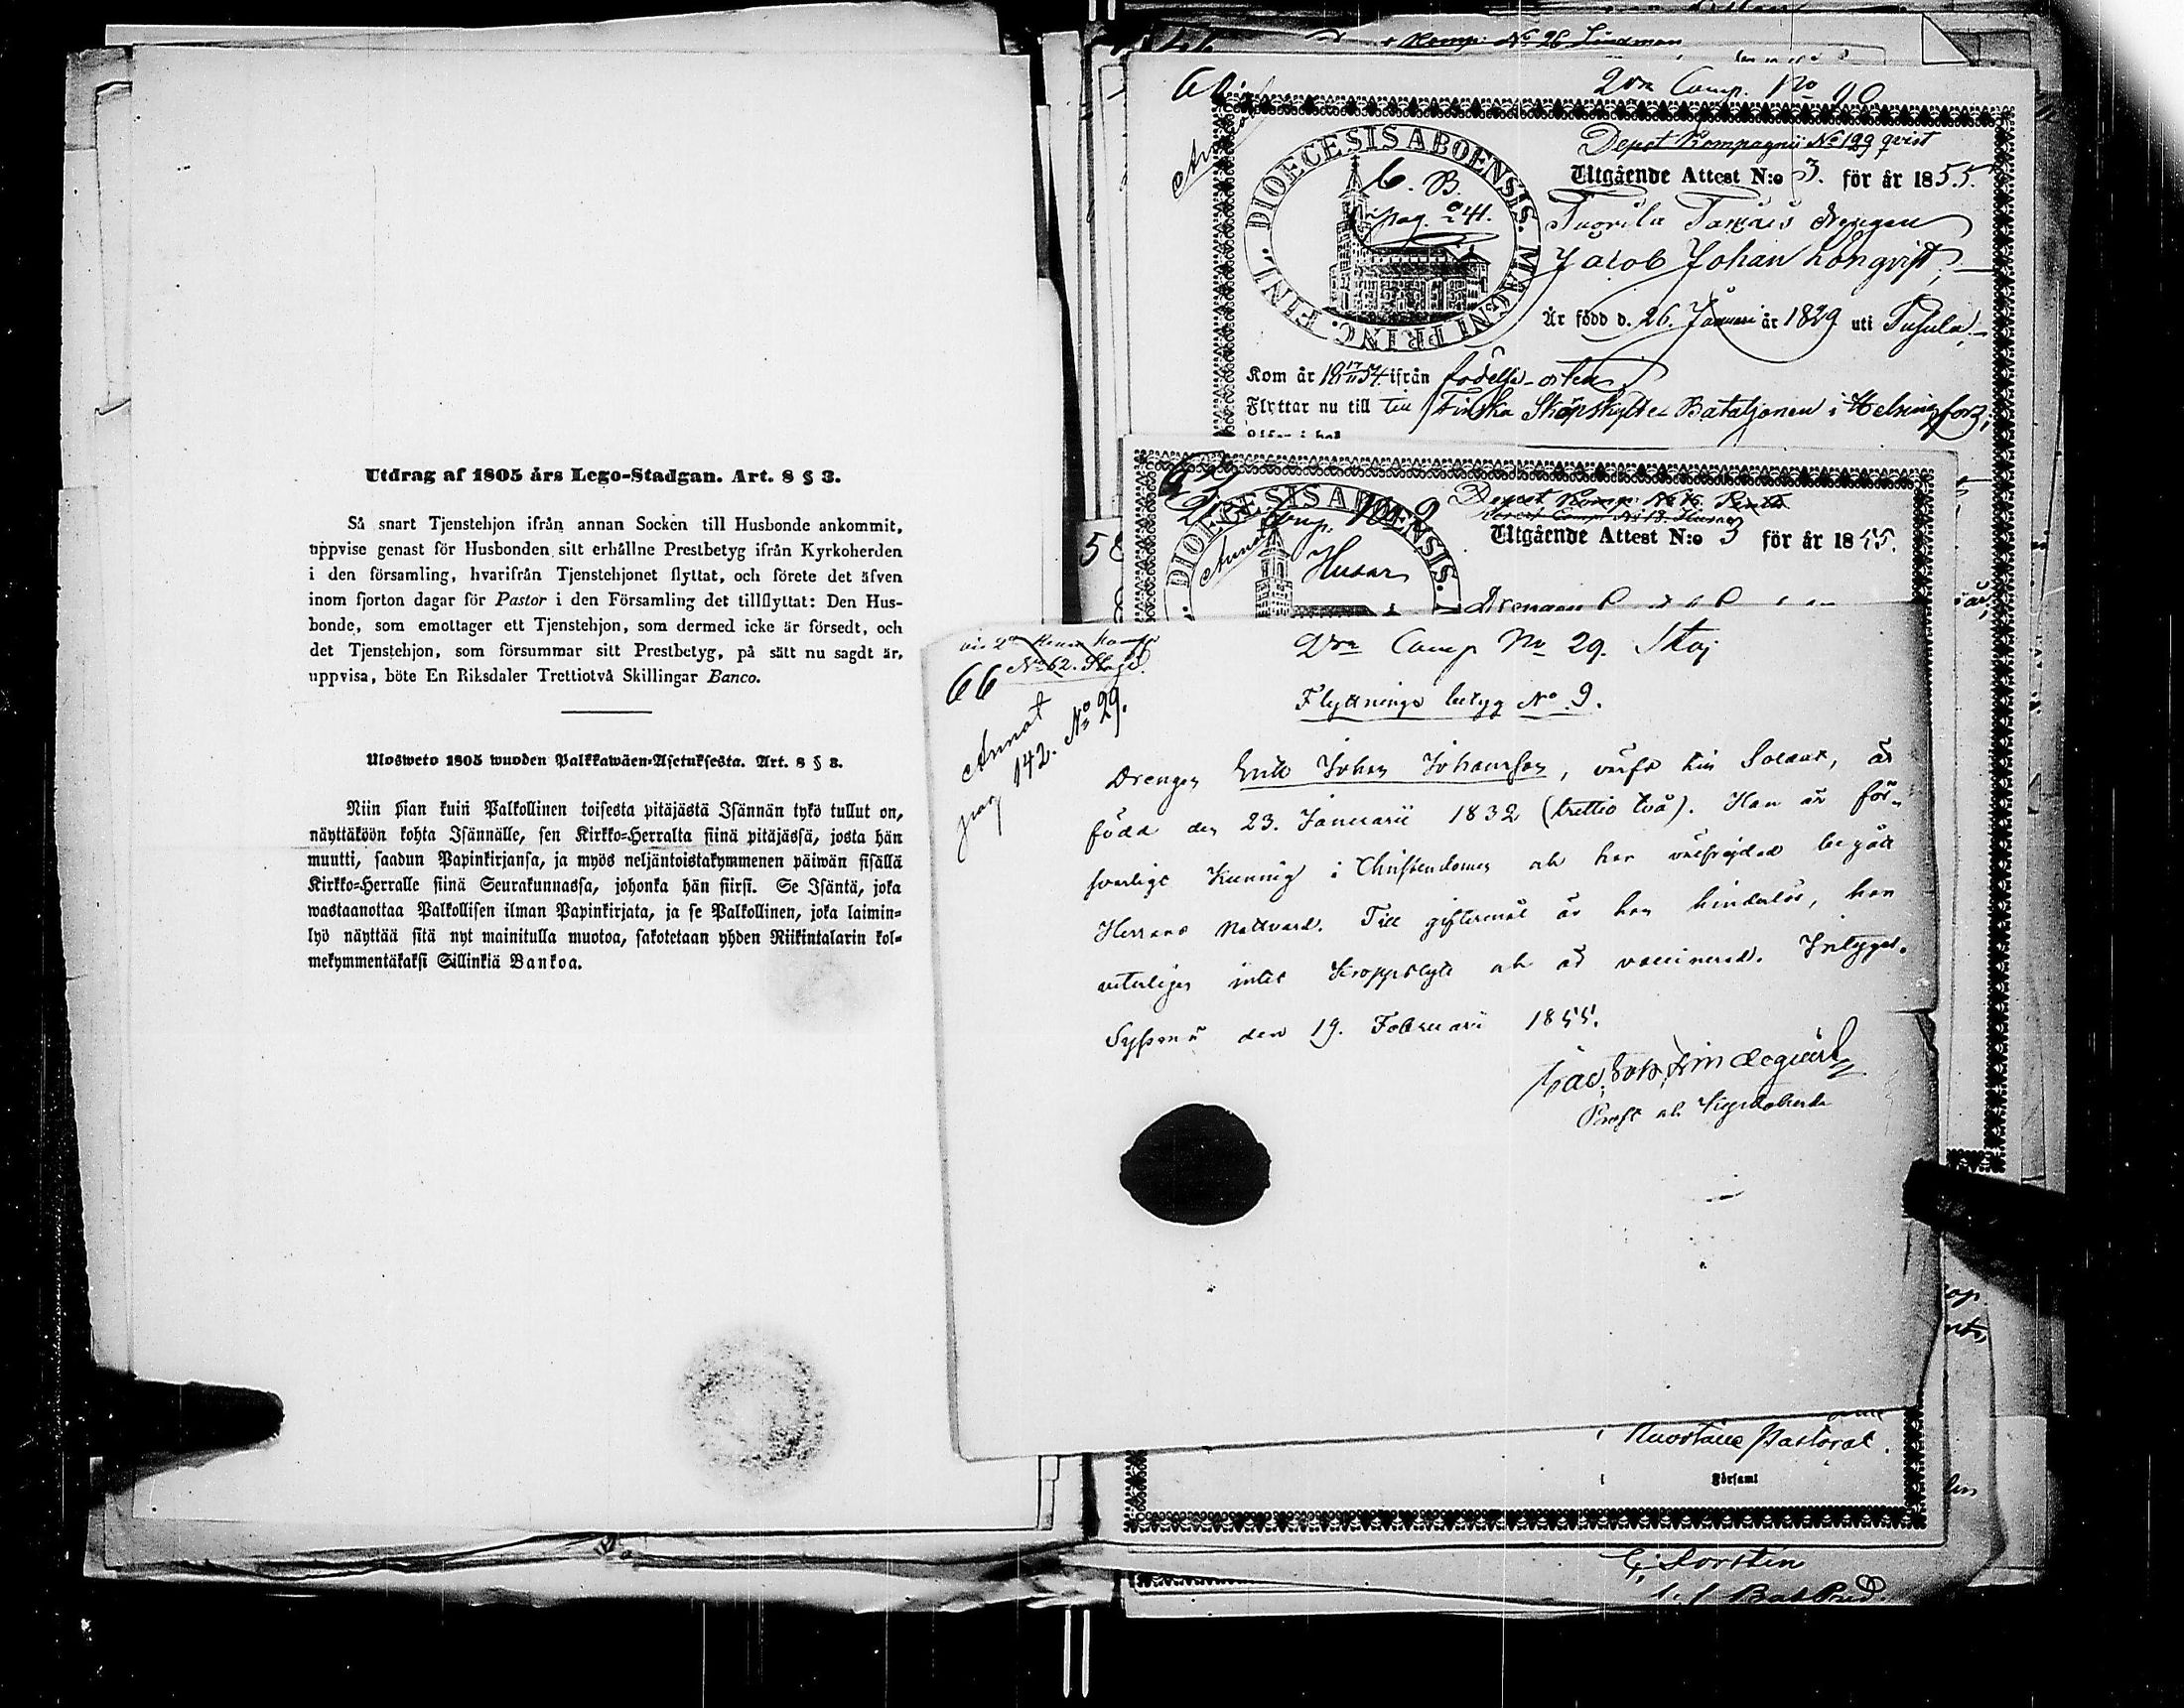 Utdrag af 1805 års Lego-Stadgan. Art. 8 § 3.
Så snart Tjenstehjon ifrån annan Socken till Husbonde ankommit,
uppvise genast för Husbonden sitt erhållne Prestbetyg ifrån Kyrkoherden
i den församling, hvarifrån Tjenstehjonet flyttat, och förete det äfven
inom fjorton dagar för Pastor i den Församling det tillflyttat: Den Hus-
bonde, som emottager ett Tjenstehjon, som dermed icke är försedt, och
det Tjenstehjon, som försummar sitt Prestbetyg, på sätt nu sagdt är,
uppvisa, böte En Riksdaler Trettiotvå Skillingar Banco.
Ulosweto 1805 wuoden Palkkawäen-Asetuksesta. Art. 8 § 3.
Niin pian kuin Palkollinen toisesta pitäjästä Isännän tykö tullut on,
näyttäköön kohta Isännälle, sen Kirkko-Herralta siinä pitäjässä, josta hän
muutti, saadun Papinkirjansa, ja myös neljäntoistakymmenen päiwän sisällä
Kirkko-Herralle siinä Seurakunnassa, johonka hän siirsi. Se Isäntä, joka
wastaanottaa Palkollisen ilman Papinkirjata, ja se Palkollinen, joka laimin-
lyö näyttää sitä nyt mainitulla muotoa, sakotetaan yhden Riikintalarin kol-
mekymmentäkaksi Sillinkiä Bankoa.
Komp. No 26 Lindman
2dra Comp. No 90
Depot Kompagnii No 129 qvist
DIOECESIS ABOENSIS. MAGNI PRINC. FINL.
C. B.
pag. 241.
Utgående Attest N:o 3. för år 1855.
Drengen
Jacob Johan Lönqvist,
Är född d. 26. Januari år 1829 uti Pusula
Kom år 1854 ifrån födelse-orten
Flyttar nu till Finska Skarpskytte Bataljonen i Helsingfors,
DIOECESIS ABOENSIS.
Comp. No 2
Husar
Utgående Attest N:o 3 för år 1855.
58
No 62.
66
Annat
pag 142. No 29.
2dra Comp No 29. Skog
Flyttnings betyg No 9.
Drengen Erik Johan Johansson, värfd till Soldat, är
född den 23. Januarii 1832 (trettio två). Han är för-
svarligt kunnig i Christendomen och har välfrejdad begått
Herrans Nattvard. Till giftermål är han hinderlös, har
veterligen intet kroppslyte och är vaccinerad. Intygas.
den 19. Februari 1855.
Prost och Kyrkoherde
Pastorat.
Församl